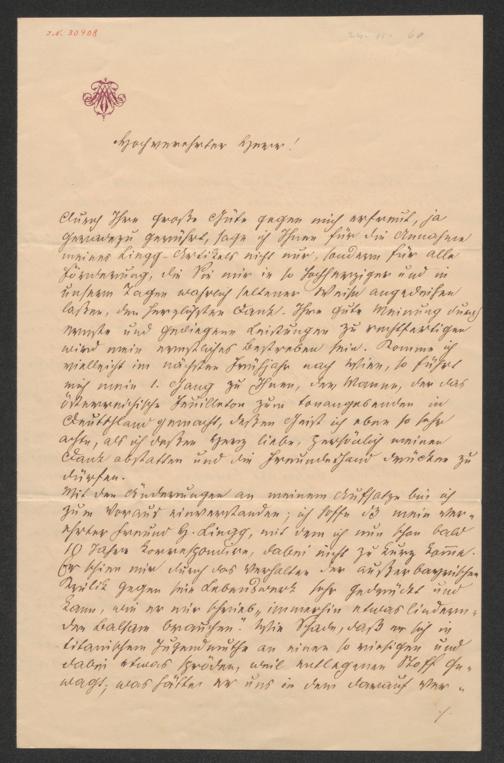 J.N. 30908
Hochverehrter Herr!
Durch Ihre große Güte gegen mich erfreut, ja
geradezu gerührt, sage ich Ihnen für die Annahme
meines Lingg-Artikels nicht nur, sondern für alle
Förderung, die Sie mir in so hochherziger und in
unsern Tagen wahrlich seltener Weise angedeihen
laßen, den herzlichsten Dank. Ihre gute Meinung durch
ernste und gediegene Leistungen zu rechtfertigen
wird mein ernstliches Bestreben sein. Komme ich
vielleicht im nächsten Frühjahr nach Wien, so führt
mich mein 1. Gang zu Ihnen, dem Manne, der das
österreichische Feuilleton zum tonangebenden in
Deutschland gemacht, deßen Geist ich eben so sehr
achte, als ich deßen Herz liebe, persönlich meinen
Dank abstatten und die Freundeshand drücken zu
dürfen.
Mit den Änderungen an meinem Aufsatze bin ich
zum Voraus einverstanden; ich hoffe dß mein ver-
ehrter Freund H. Lingg, mit dem ich nun schon bald
10 Jahre korrespondire, dabei nicht zu kurz komme.
Er schien mir durch das Verhalten der außerbayrischen
Kritik gegen sein Lebenswerk sehr gedrückt und
kann, wie er mir schrieb, "immerhin etwas lindern-
den Balsam brauchen." Wie Schade, daß er sich in
titanischem Jugendmuthe an einen so riesigen und
dabei etwas spröden, weil entlegenen Stoff ge-
wagt; was hätte er uns in dem darauf ver-